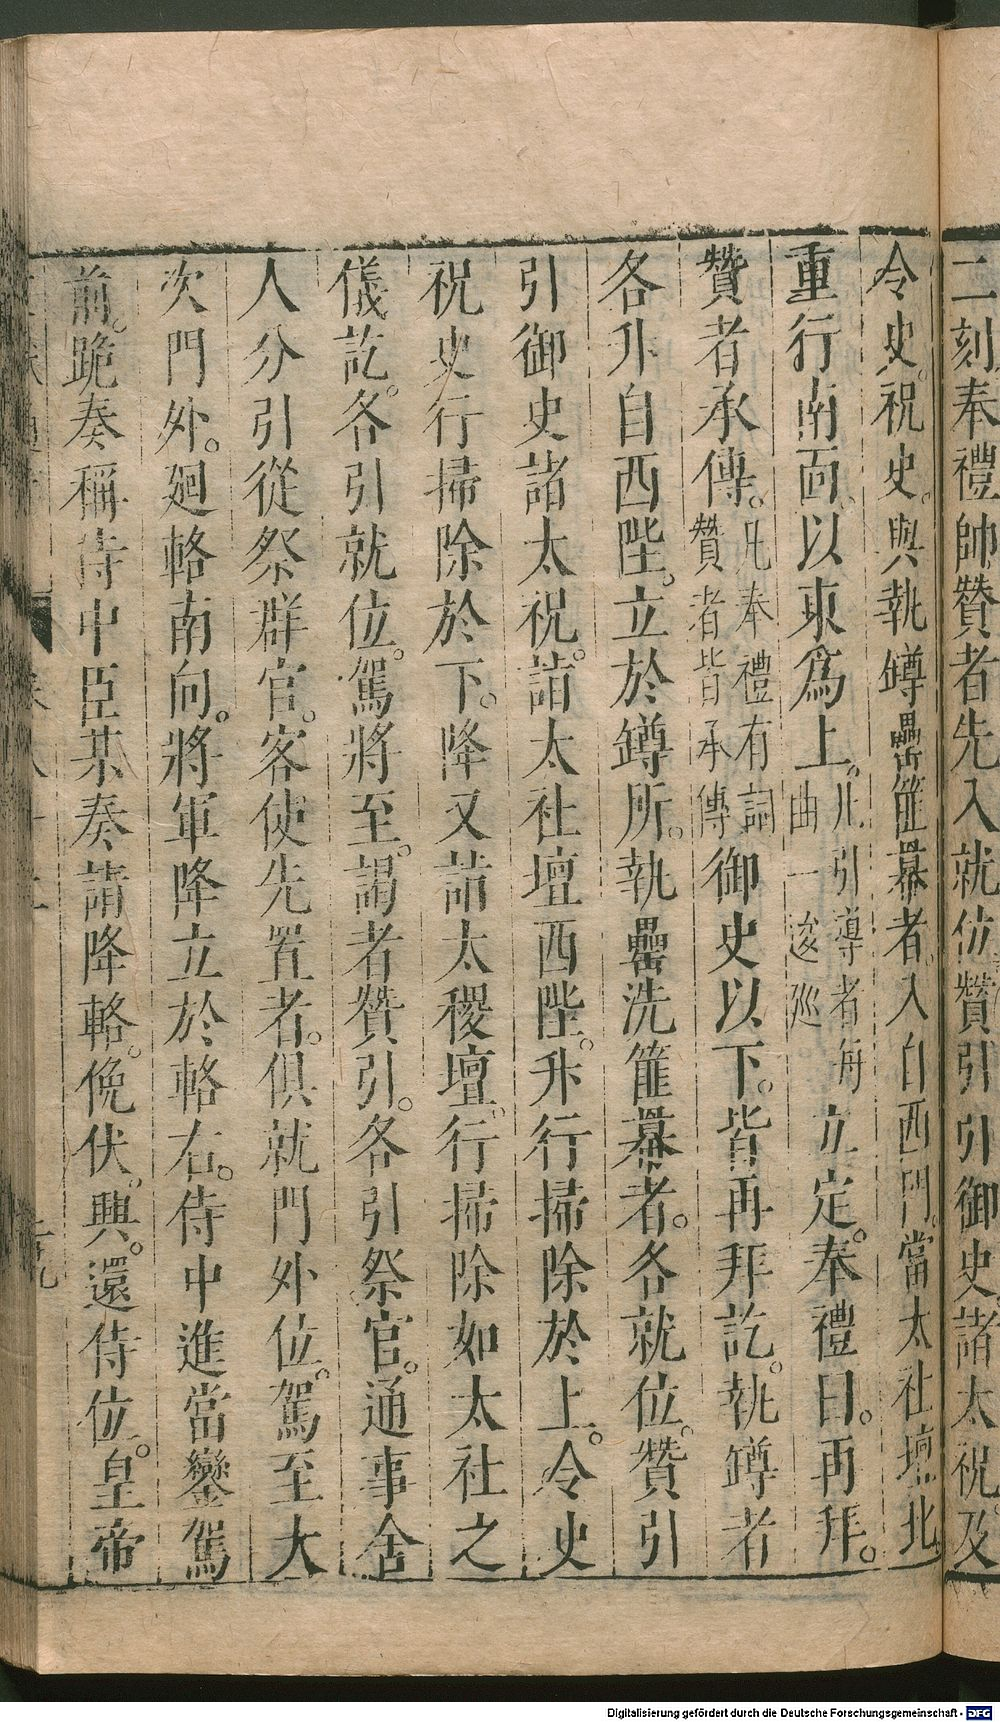 二刻奉禮帥贊者先入就位贊引引御史諸太祝及
令史。祝史。與執罇罍篚冪者。入自西門。當太社壇北
重行南面。以東爲上。凡引導者每曲一逡廵。立定。奉禮曰。再拜。
贊者承傳。凡奉禮有詞贊者皆承傳御史以下。皆再拜訖。執罇者
各升自西陛。立於罇所。執罍洗篚冪者。各就位。贊引
引御史諸太祝。詣太社壇西陛。升行掃除於上。令史
祝史行掃除於下。降又詣太稷壇。行掃除如太社之
儀訖。各引就位。駕將至。謁者贊引。各引祭官。通事舍
人分引從祭群官。客使先置者。俱就門外位。駕至大
次門外。廻輅南向。將軍降立於輅右。侍中進當鑾駕
前。跪奏稱侍中臣某奏請降輅。俛伏。興。還侍位。皇帝
Digitalisierung gefördert durch die Deutsche Forschungsgemeinschaft - DFG